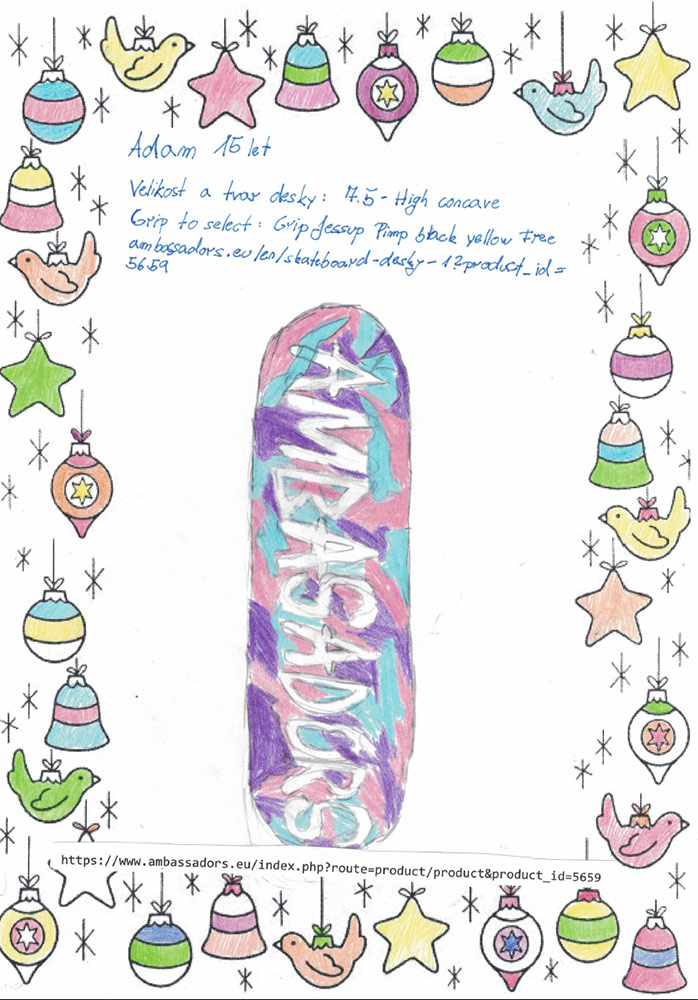 Adam 15 let
Velikost a tvar desky: 7.5 - High concave
Grip to select: Grip Jessup Pimp black yellow Free
ambassadors.eu/en/skateboard-desky-1?product_id=
5659
AMBASADORS
https://www.ambassadors.eu/index.php?route=product/product&product_id=5659